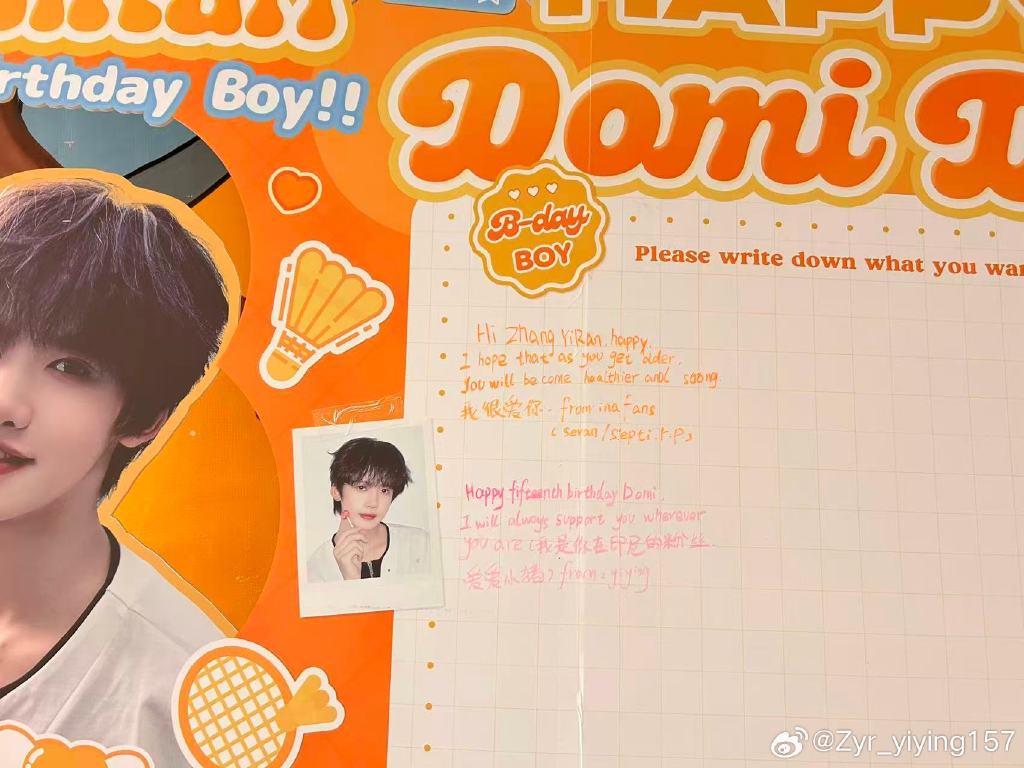 rthday Boy!!
HAPPY
Domi D
B-day
BOY
Please write down what you wan
Hi Zhang YiRan. happy.
I hope that as you get older.
You will become healthier and soong
我很爱你.. from ina fans
( sevan/septi.r.p)
Happy fifteenth birthday Domi.
I will always support you wherever
you are (我是你在印尼的粉丝.
爱爱小猪) from : yiying
@Zyr_yiying157